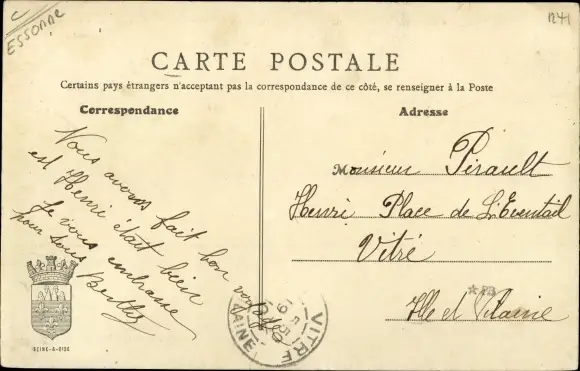 ESSONNE
1241
CARTE POSTALE
Certains pays étrangers n'acceptant pas la correspondance de ce côté, se renseigner à la Poste
Correspondance
Adresse
Vous avons fait bon voyage
et Henri était bien
Je vous embrasse
pour tous
Berthe
Monsieur Pérault
Henri Place de L'Eventail
Vitré
Ille et Vilaine
VITRÉ
SEINE-&-OISE